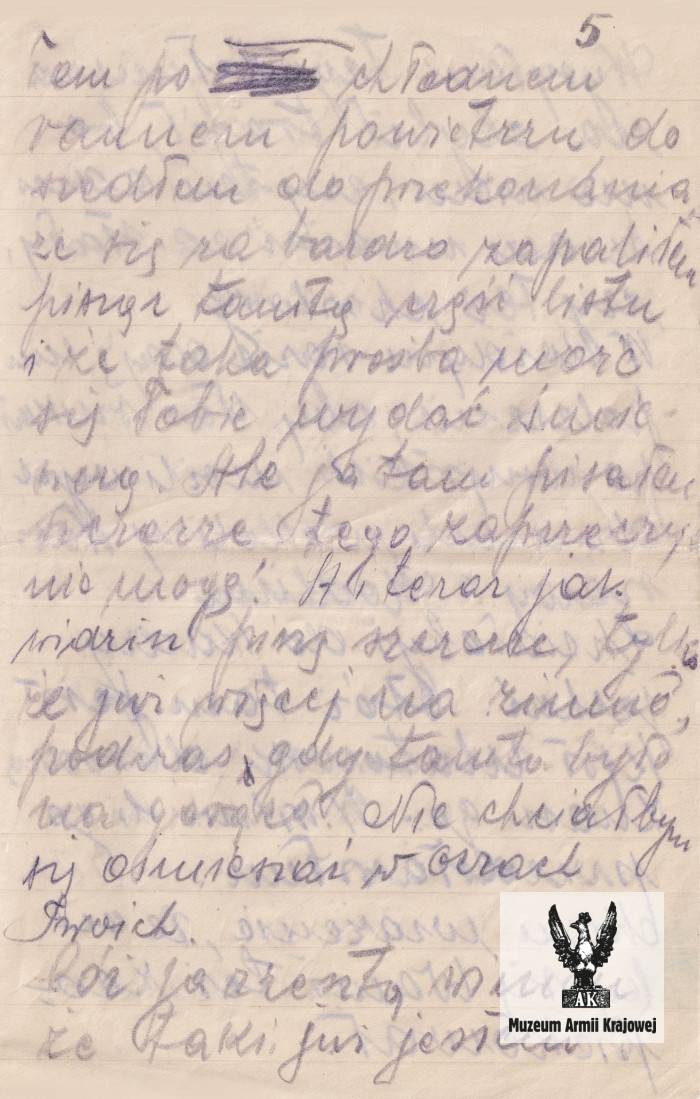 5
łem po chłodnem
rannem powietrzu do
szedłem do przekonania
że się za bardzo zapaliłem
pisząc tamtą część listu
i że taka prośba może
się Tobie wydać śmie-
szną. Ale ja tam pisałem
szczerze tego zaprzeczyć
nie mogę! A i teraz jak
widzisz piszę szczerze, tylko
że już więcej na zimno,
podczas gdy tamto było
na gorąco. Nie chciałbym
się ośmieszać w oczach
Twoich.
Cóż ja zresztą
że taki już jestem
AK
Muzeum Armii Krajowej